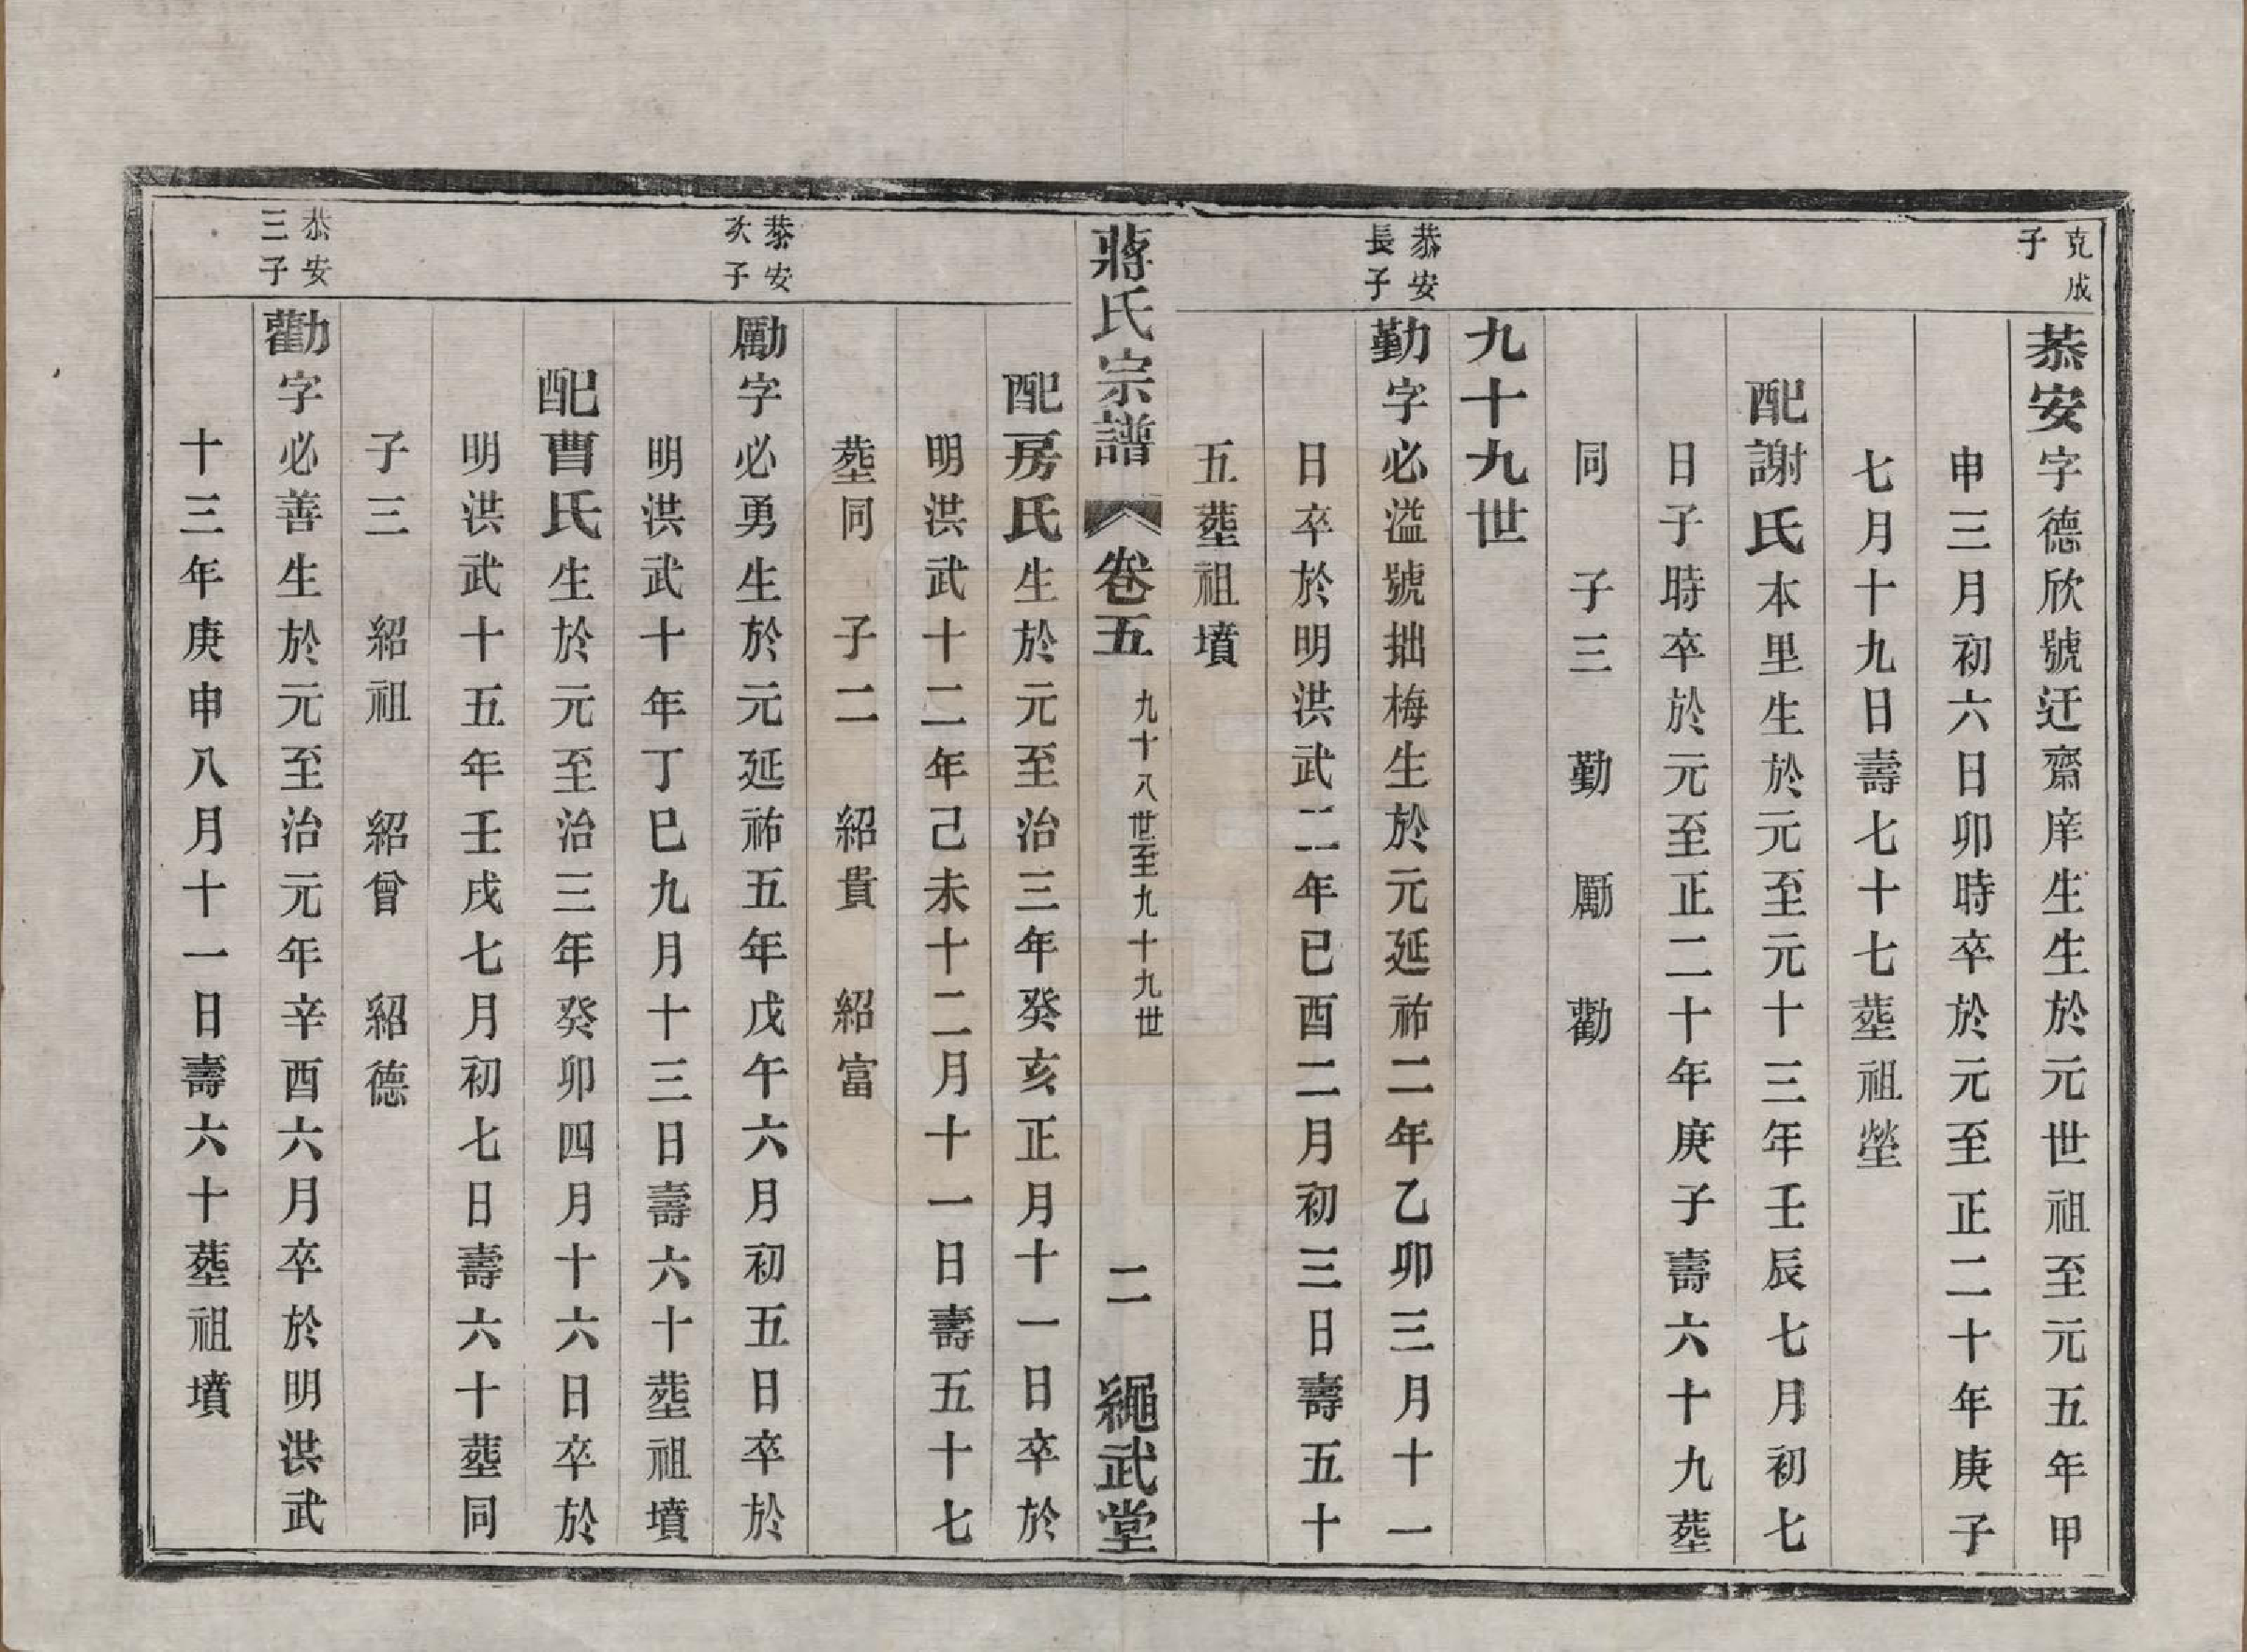 克成
子
恭安字德欣號迂齋庠生生於元世祖至元五年甲
申三月初六日卯時卒於元至正二十年庚子
七月十九日壽七十七塟祖塋
配謝氏本里生於元至元十三年壬辰七月初七
日子時卒於元至正二十年庚子壽六十九塟
同　子三　勤　勵　勸
九十九世
恭安
長子
勤字必溢號拙梅生於元延祐二年乙卯三月十一
日卒於明洪武二年已酉二月初三日壽五十
五塟祖墳
蔣氏宗譜　卷五　九十八世至九十九世　二　繩武堂
配房氏生於元至治三年癸亥正月十一日卒於
明洪武十二年己未十二月十一日壽五十七
塟同　子二　紹貴　紹富
恭安
次子
勵字必勇生於元延祐五年戊午六月初五日卒於
明洪武十年丁巳九月十三日壽六十塟祖墳
配曹氏生於元至治三年癸卯四月十六日卒於
明洪武十五年壬戌七月初七日壽六十塟同
子三　紹祖　紹曾　紹德
恭安
三子
勸字必善生於元至治元年辛酉六月卒於明洪武
十三年庚申八月十一日壽六十塟祖墳